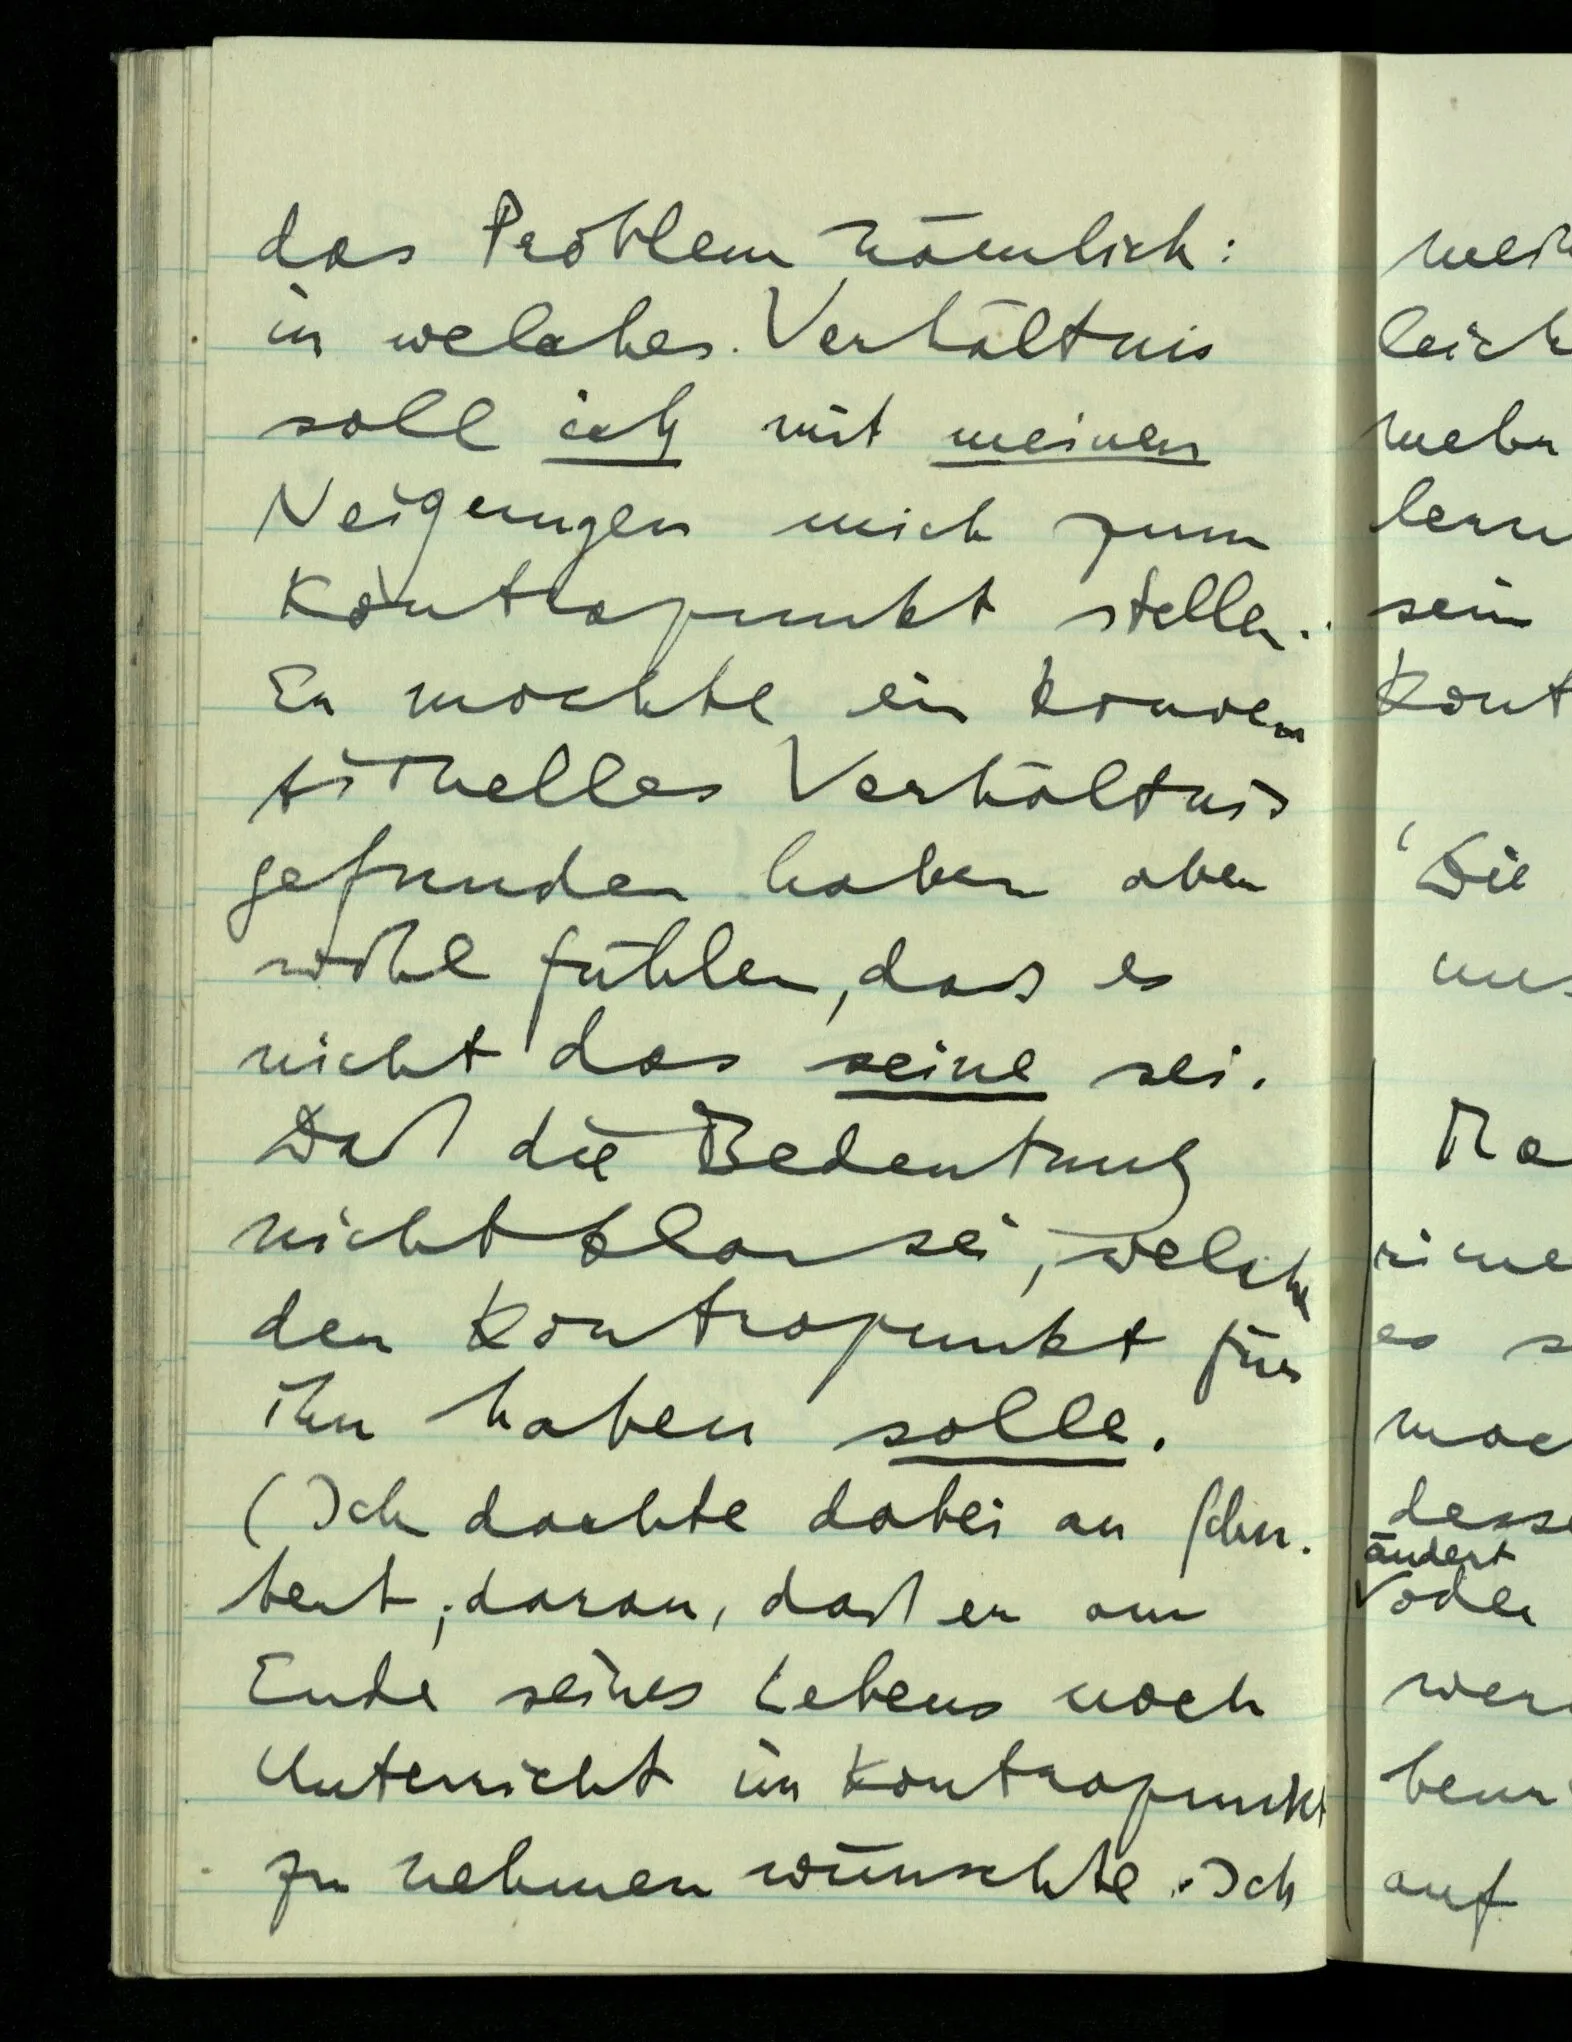 das Problem nämlich:
in welches Verhältnis
soll ich mit meinen
Neigungen mich zum
Kontrapunkt stellen.
Er mochte ein konven
tionelles Verhältnis
gefunden haben aber
wohl fühlen, daß es
nicht das seine sei.
Daß die Bedeutung
nicht klar sei, welche
der Kontrapunkt für
ihn haben solle.
(Ich dachte dabei an Schu-
bert; daran, daß er am
Ende seines Lebens noch
Unterricht im Kontrapunkt
zu nehmen wünschte. Ich
leich
mehr
lern
sein
Kont
'Die
es s
desse
ändert
oder
wer
auf